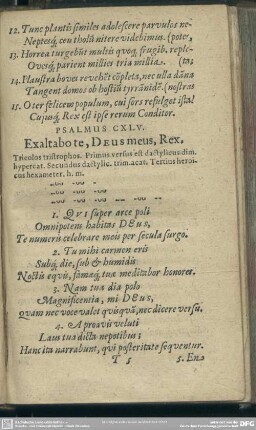 12. Tunc plantis similes adolescere parvulos ne-
Neptesq́, ceu tholis nitere videbimus. (potes,
13. Horrea turgebūt multis quoq́ frugib. reple-
Ovesq́, parient millies tria millia. (ta,
14. Plaustra boves revehēt cōpleta, nec ulla dāna
Tangent domos ob hostiū tyrānidē. (nostras
15. O ter felicem populum, cui sors refulget ista!
Cujusq́, Rex est ipse rerum Conditor.
PSALMUS CXLV.
Exaltabo te, DEUS meus, Rex.
Tricolos tristrophos. Primus versus est dactylicus dim.
hypercat. Secundus dactylic. trim. acat. Tertius heroi-
cus hexameter. h. m.
1. QVI super arce poli
Omnipotens habitas DEus,
Te numeris celebrare meis per secula surgo.
2. Tu mihi carmen eris
Subq́, die, sub & humidis
Noctis equis, famaq́, tua meditabor honores.
3. Nam tua dia polo
Magnificentia, mi DEus,
Quam nec voce valet quisquā, nec dicere versu.
4. A proavis veluti
Laus tua dicta nepotibus;
Hanc ita narrabunt, qui posteritate sequentur.
T 5 5. En-